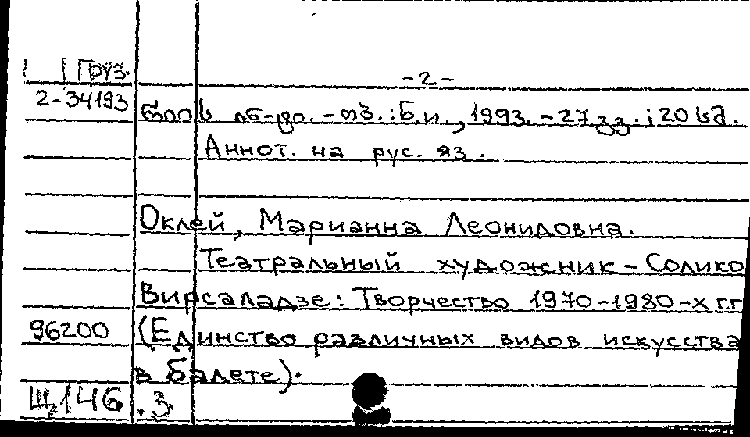 Груз.
-2-
2-34193
ის ინ-ტი. -თბ. : Б.и., 1993. - 27 გვ. ; 20 სმ.
Аннот. на рус. яз.
Оклей, Марианна Леонидовна.
Театральный художник - Солико
Вирсаладзе: Творчество 1970-1980-х гг
96200 (Единство различных видов искусства
в балете).
Щ146.3